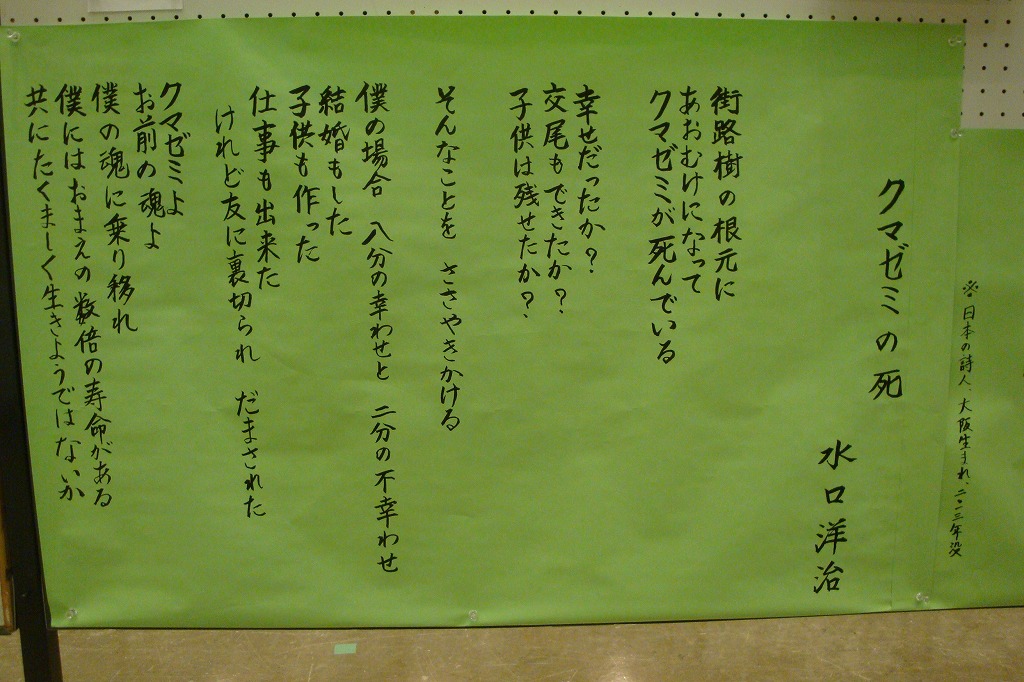 ※日本の詩人、大阪生まれ、
クマゼミの死
水口洋治
街路樹の根元に
あおむけになって
クマゼミが死んでいる
幸せだったか?
交尾もできたか?
子供は残せたか?
そんなことを ささやきかける
僕の場合 八分の幸わせと 二分の不幸わせ
結婚もした
子供も作った
仕事も出来た
けれど友に裏切られ だまされた
クマゼミよ
お前の魂よ
僕の魂に乗り移れ
僕にはおまえの数倍の寿命がある
共にたくましく生きようではないか